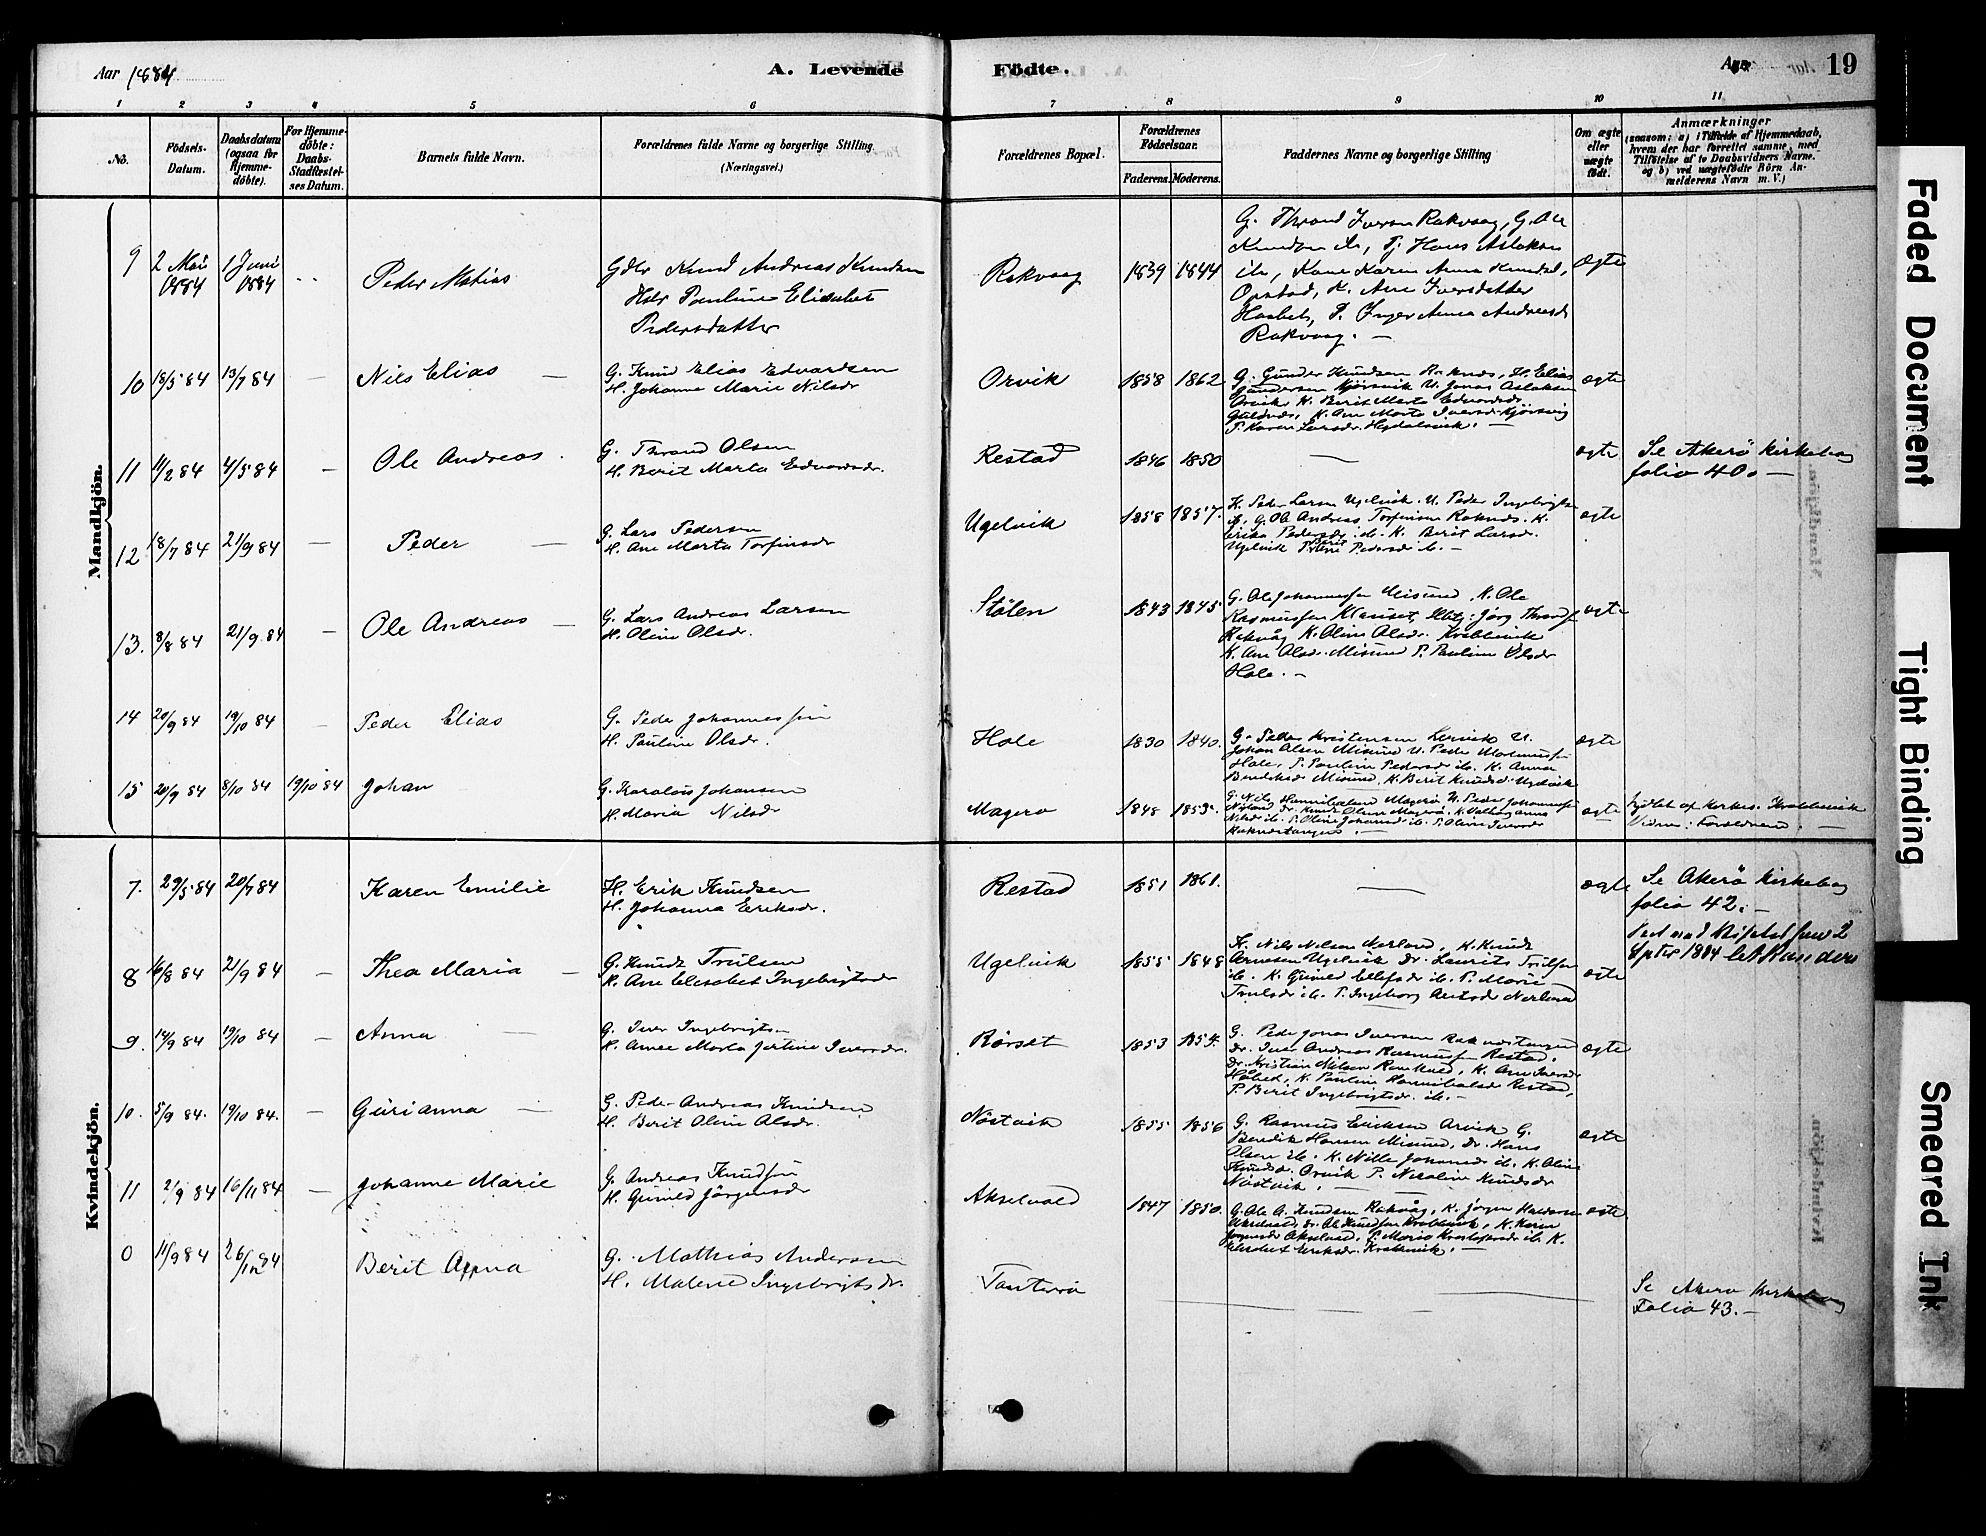 Aar 1884
A. Levende
Födte.
Aar
19
1 2 3 4 5 6 7 8 9 10 11
No.
Födsels-Datum.
Daabsdatum (ogsaa for Hjemme-döbte).
For Hjemme-döbte: Daabs-Stadfæstel-ses Datum.
Barnets fulde Navn.
Forældrenes fulde Navne og borgerlige Stilling. (Næringsvei.)
Forældrenes Bopæl.
Forældrenes Födselsaar.
Faderens. Moderens.
Faddernes Navne og borgerlige Stilling
Om ægte eller uægte födt.
Anmærkninger (saasom: a) i Tilfælde af Hjemmedaab, hvem der har forrettet samme, med Tilföielse af to Daabsvidners Navne. og b) ved uægtefödte Börn An-melderens Navn m. V.)
Mandkjön.
9 2 Mai 1884 1 Juni 1884 Peder Matias
Gdbr Knud Andreas Knudsen
Hstr Pauline Elisabet
Pedersdatter
Rakvaag 1839 1844
G. Thrond Iversen Rakvaag, G. Ole
Knudsen ib, Tj Hans Aslaksen
ib, Kone Karen Anna Knudsd.,
Opstad, K. Ane Iversdatter
P. Inger Anna Andreasd
Rakvaag. —
ægte
10 18/5 84 13/7 84 — Nils Elias —
G. Knud Elias Edvardsen
H. Johanne Marie Nilsdr
Orvik 1858 1862
G. Gunder Knudsen Raknes, H. Elias
Gundersen Kjörsvik U. Jonas Aslaksen
Orvik, K. Berit Marta Edvardsdr.
K. Ane Marta Iversdr Kjörsvig
P. Karen Larsdr.
ægte
11 11/2 84 4/5 84 — Ole Andreas
G. Thrond Olsen
H. Berit Marta Edvardsdr.
Restad 1846 1850 — ægte
Se Akerö Kirkebog
folio 40. —
12 18/7 84 21/9 84 — Peder —
G. Lars Pedersen
H. Ane Marta Torfinsdr
Ugelvik 1858 1857.
K. Peder Larsen Ugelvik. U. Peder Ingebrigtsen
ib, G. Ole Andreas Torfinsen Raknes. K.
Erika Pedersdr. ib. K. Berit Larsd.
Ugelvik P. Berit Pedersd ib. —
ægte
13. 8/8 84 21/9 84 — Ole Andreas —
G. Lars Andreas Larsen
H. Oline Olsdr.
Stölen 1843 1845
G. Ole Johannessen Misund, K. Ole
Rasmussen Klauset, Jörg Thronds
Rakvåg K. Oline Olsdr. Krabbevik
K. Ane Olsdr. Misund P. Pauline Olsdr
Hole. —
ægte
14 20/9 84 19/10 84 — Peder Elias
G. Peder Johannessen
H. Pauline Olsdr.
Hole 1830 1840.
G. Peder Kristensen U.
Johan Olsen Misund U. Peder
Hole, P. Pauline Pedersdr ib. K. Anna
Bendiksd Misund, K. Berit Knudsd. Ugelvik
ægte
15 20/9 84 8/10 84 19/10 84 Johan
G. Karolus Johansen
H. Maria Nilsdr
Magerø 1848 1853.
G. Nils Hannibalsen Magerö U. Peder Johannessen
Dr. Knud Olsen Magerö, K.
Nilsd ib. P. Oline Johansd ib. P. Oline Iversdr
Raknestangen. —
ægte
af Kirkes. Krabbevik
Vidne: Forældrene. —
Kvindekjön.
7. 29/5 84 20/7 84 Karen Emilie
H. Erik Knudsen
H. Johanna Eriksdr.
Restad 1851 1861. — ægte
Se Akerö Kirkebog
folio 42. —
8 16/8 84 21/9 84 — Thea Maria —
G. Knud Trulsen
K. Ane Elisabet Ingebrigtsdr
Ugelvik 1855 1848
K. Nils Nilsen Nerland, K. Knud
Arnesen Ugelvik Dr. Laurits Trulsen
ib. K. Gunild Ellefsdr ib. P. Marie
Trulsdr ib. P. Ingeborg Nerland
ægte
9. 14/9 84 19/10 84 — Anna —
G. Iver Ingebrigtsen
K. Anne Marta Jertine Iversdr.
Rörset 1853 1854.
G. Peder Jonas Iversen Raknestangen
Dr. Iver Andreas Rasmussen Restad.
Dr. Kristian Nilsen K. Ane Iversdr
K. Pauline Hannibalsd Restad,
P. Berit Ingebrigtsdr. ib. —
ægte
10. 5/9 84. 19/10 84. — Gurianna —
G. Peder Andreas Knudsen
H. Berit Oline Olsdr.
Nöstvik 1855 1856
G. Rasmus Eriksen Orvik G.
Bendik Hansen Misund, Dr. Hans
Olsen ib. K. Nille Johansd ib. K. Oline
Knudsd. Orvik P. Nicoline Knudsdr
Nöstvik.
ægte
11 2/9 84 16/11 84 — Johanne Marie
G. Andreas Knudsen
H. Gunild Jörgensdr
Akselvold 1847 1850.
G. Ole A. Knudsen Rakvåg, K. Jörgen
Akselvold, Dr. Ole Knudsen Krabbevik, K. Karen
Jörgensdr Akselvold, P. Maria ib. K.
Elisabet Eriksdr. Krabbevik. —
ægte
0 11/9 84 26/12 84 Berit Anna
G. Mathias Andersen
H. Malene Ingebrigtsdr.
Tauterö — — —
Se Akerö Kirkebog
Folio 43. —
Faded Document
Tight Binding
Smeared Ink